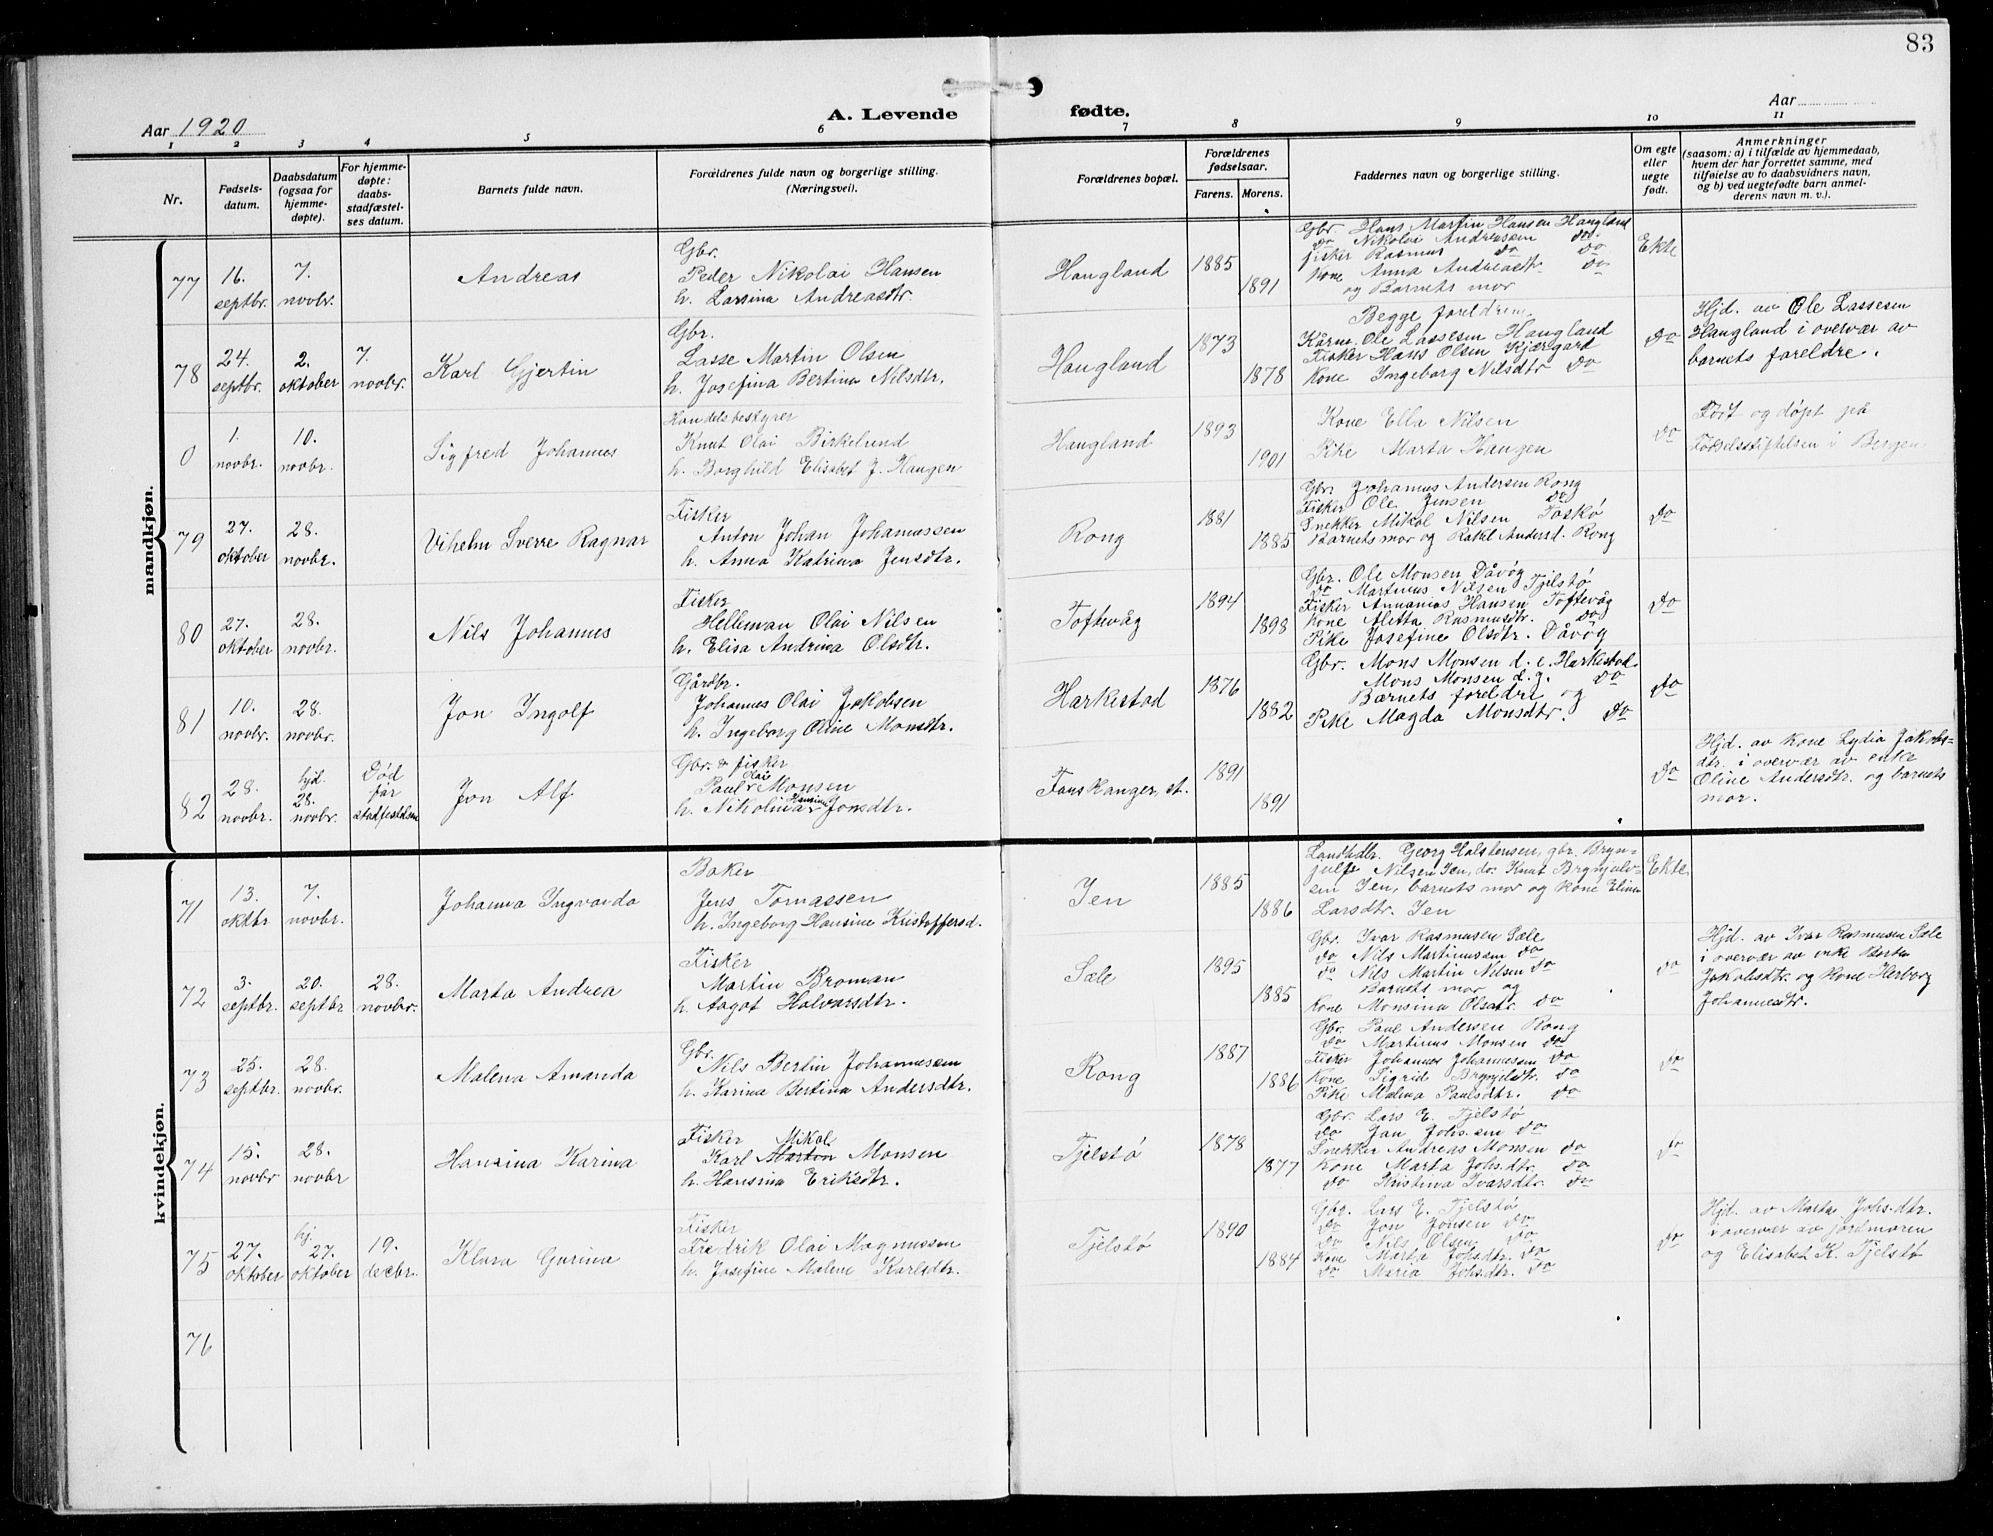 83
A. Levende fødte.
Aar 1920
Aar
1 2 3 4 5 6 7 8 9 10 11
Nr.
Fødsels-
datum.
Daabsdatum
(ogsaa for
hjemme-
døpte).
For hjemme-
døpte:
daabs-
stadfæstel-
ses datum.
Barnets fulde navn.
Forældrenes fulde navn og borgerlige stilling.
(Næringsvei).
Forældrenes bopæl.
Forældrenes
fødselsaar.
Farens. Morens.
Faddernes navn og borgerlige stilling.
Om egte
eller
uegte
født.
Anmerkninger
(saasom: a) i tilfælde av hjemmedaab,
hvem der har forrettet samme, med
tilføielse av to daabsvidners navn,
og b) ved uegtefødte barn anmel-
derens navn m. v.).
mandkjøn.
77
16.
septbr.
7.
novbr.
Andreas
Gbr.
Peder Nikolai Hansen
h. Larsina Andreasdtr.
Haugland
1885
1891
Gbr. Hans Martin Hansen Haugland
do Nikolai Andreassen do
fisker Rasmus do do
kone Anna Andreasdtr do
og Barnets mor
Ekte
78
24.
septbr.
2.
oktober
7.
novbr.
Karl Gjertin
Gbr.
Lasse Martin Olsen
h. Josefina Bertina Nilsdtr.
Haugland
1873
1878
Begge foreldrene
Ole Lassesen Haugland
Fisker Hans Olsen Kjærgard
Kone Ingeborg Nilsdtr do
do
Hjd. av Ole Lassesen
Haugland i overvær av
barnets foreldre.
0
1.
novbr.
10.
novbr.
Sigfred Johannes
Handelsbestyrer
Knut Olai Birkelund
h. Borghild Elisabet J. Haugen
Haugland
1893
1901
Kone Ella Nilsen
Pike Marta Haugen
do
Født og døpt på
Fødselsstiftelsen i Bergen
79
27.
oktober
28.
novbr.
Vilhelm Sverre Ragnar
Fisker
Anton Johan Johannessen
h. Anna Katrina Jensdtr.
Rong
1881
1885
Gbr. Johannes Andersen Rong
Fisker Ole Jensen do
Snekker Mikal Nilsen Toskø
Barnets mor og Rakel Andersd. Rong
do
80
27.
oktober
28.
novbr.
Nils Johannes
Fisker
Helleman Olai Nilsen
h. Elisa Andrina Olsdtr.
Toftevåg
1894
1898
Gbr. Ole Monsen Dåvøy
do Martinus Nilsen Tjelstø
Fisker Annanias Hansen Toftevåg
Kone Alitta Rasmusdtr. do
Pike Josefine Olsdtr. Dåvøy
do
81
10.
novbr.
28.
novbr.
Jon Ingolf
Gårdbr.
Johannes Olai Jakobsen
h. Ingeborg Oline Monsdtr.
Harkestad
1876
1882
Gbr. Mons Monsen d. e. Harkestad
Mons Monsen d. y. do
Barnets foreldre og
Pike Magda Monsdtr. do
do
82
28.
novbr.
hjd.
28.
novbr.
Død
før
stadfestelsen
Jon Alf
Gbr. & fisker
Olai
Paul Monsen
Hansine
h. Nikolina Jonsdtr.
Fonskanger, st.
1891
1891
do
Hjd. av kone Lydia Jakobs-
dtr. i overvær av enke
Oline Andersdtr. og barnets
mor.
kvindekjøn.
71
13.
oktbr
7.
novbr.
Johanna Ingvarda
Baker
Jens Tomassen
h. Ingeborg Hansine Kristoffersd.
Jen
1885
1886
Landhdlr. Georg Halstensen, gbr. Bryn-
julf Nilsen Jen, do. Knut Brynjulv-
sen Jen, barnets mor og kone Elina
Larsdtr. Jen
Ekte
72
3.
septbr.
20.
septbr
28.
novbr.
Marta Andrea
Fisker
Martin Broman
h. Aagot Halvarsdtr.
Sæle
1895
1885
Gbr. Ivar Rasmusen Sæle
do Nils Martinussen do
do Nils Martin Nilsen do
Barnets mor og
Kone Monsina Olsdtr. do
do
Hjd. av Ivar Rasmusen Sæle
i overvær av enke Berta
Jakobsdtr. og kone Herborg
Johannesdtr.
73
25.
septbr.
28.
novbr.
Malena Amanda
Gbr.
Nils Bertin Johannessen
h. Karina Bertina Andersdtr.
Rong
1887
1886
Gbr. Paul Andersen Rong
do Martinus Monsen do
Fisker Johannes Johannessen do
Kone Sigrid Brynjelsdtr. do
Pike Malena Paulsdtr. do
do
74
15.
novbr
28.
novbr
Hansina Karina
Fisker Mikal
Karl Martin Monsen
h. Hansina Eriksdtr.
Tjelstø
1878
1877
Gbr. Lars E. Tjelstø
do Jan Johs.sen do
Snekker Andreas Monsen do
Kone Marta Johs.dtr. do
do Kristina Ivarsdtr. do
do
75
27.
oktober
hj.
27.
oktober
19.
decbr.
Klara Gurina
Fisker
Fredrik Olai Magnussen
h. Josefine Malene Karlsdtr.
Tjelstø
1890
1884
Gbr. Lars E. Tjelstø
do Jon Jonsen do
do Nils Olsen do
Kone Marta Johsdtr. do
do Maria Johs.dtr. do
do
Hjd. av Marta Johs.dtr.
i overvær av jordmoren
og Elisabet K. Tjelstø
76